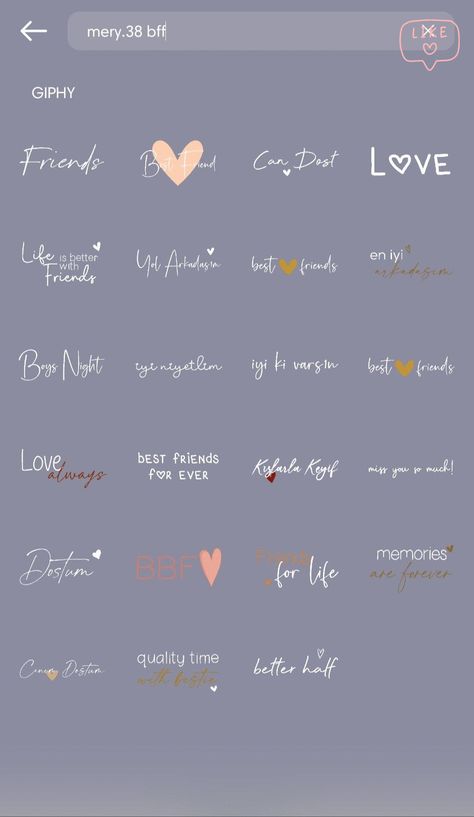 mery.38 bff
LIKE
GIPHY
Friends
Best Friend
Can Dost
LOVE
Life is better
with
Friends
Yol Arkadaşım
best friends
en iyi
arkadaşım
Boys Night
iyi niyetlim
iyi ki varsın
best friends
Love
always
BEST FRIENDS
FOR EVER
Kızlarla Keyif
miss you so much!
Dostum
BBF
Friends
for life
memories
are forever
Canım Dostum
quality time
with bestie
better half